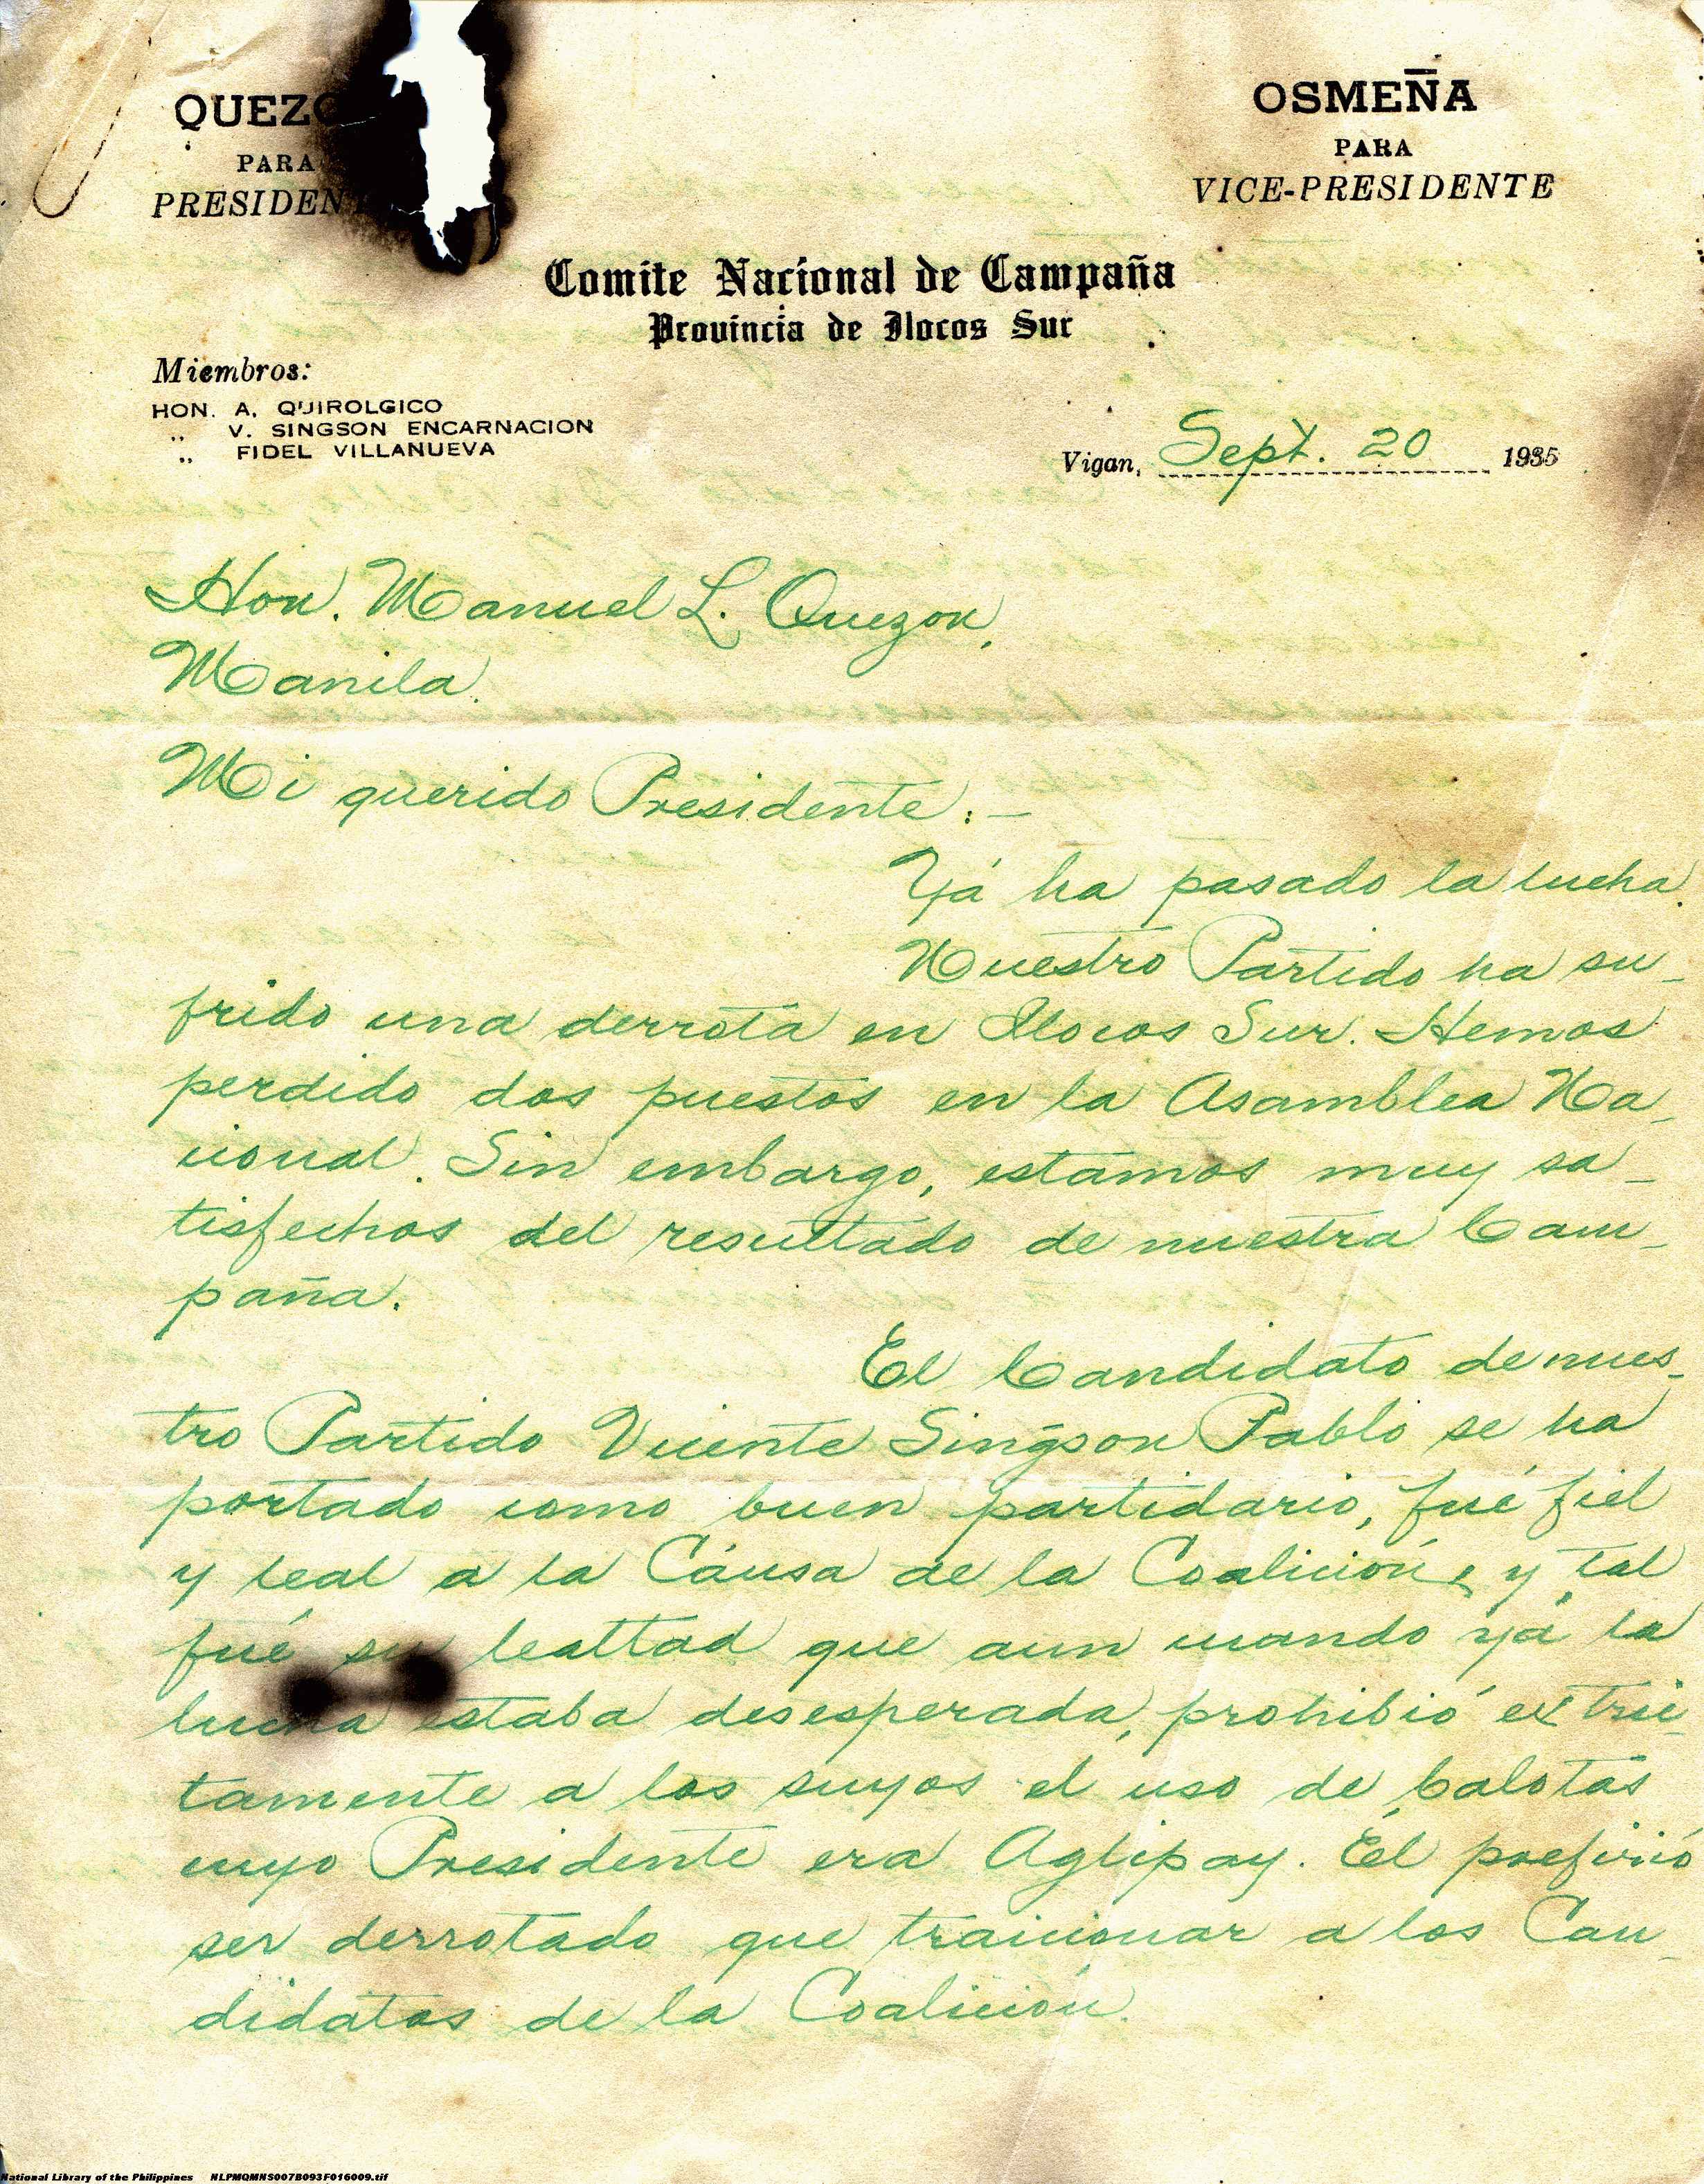 QUEZO
PARA
PRESIDENT
OSMEÑA
PARA
VICE-PRESIDENTE
Comite Nacional de Campaña
Provincia de Ilocos Sur
Miembros:
HON. A. QUIROLGICO
,, V. SINGSON ENCARNACION
,, FIDEL VILLANUEVA
Vigan, Sept. 20 1935
Hon. Manuel L. Quezon,
Manila.
Mi querido Presidente:—
Yá ha pasado la lucha.
Nuestro Partido ha su-
frido una derrota en Ilocos Sur. Hemos
perdido dos puestos en la Asamblea Na-
cional. Sin embargo, estamos muy sa-
tisfechos del resultado de nuestra Cam-
paña.
El Candidato de nues-
tro Partido Vicente Singson Pablo se ha
portado como buen partidario, fué fiel
y leal a la Cáusa de la Coalición, y tal
fué su lealtad que aun cuando yá la
lucha estaba desesperada, prohibió extric-
tamente a los suyos el uso de balotas
cuyo Presidente era Aglipay. Él prefirió
ser derrotado que traicionar a los Can-
didatos de la Coalición.
National Library of the Philippines NLPMQMNS007B093F016009.tif